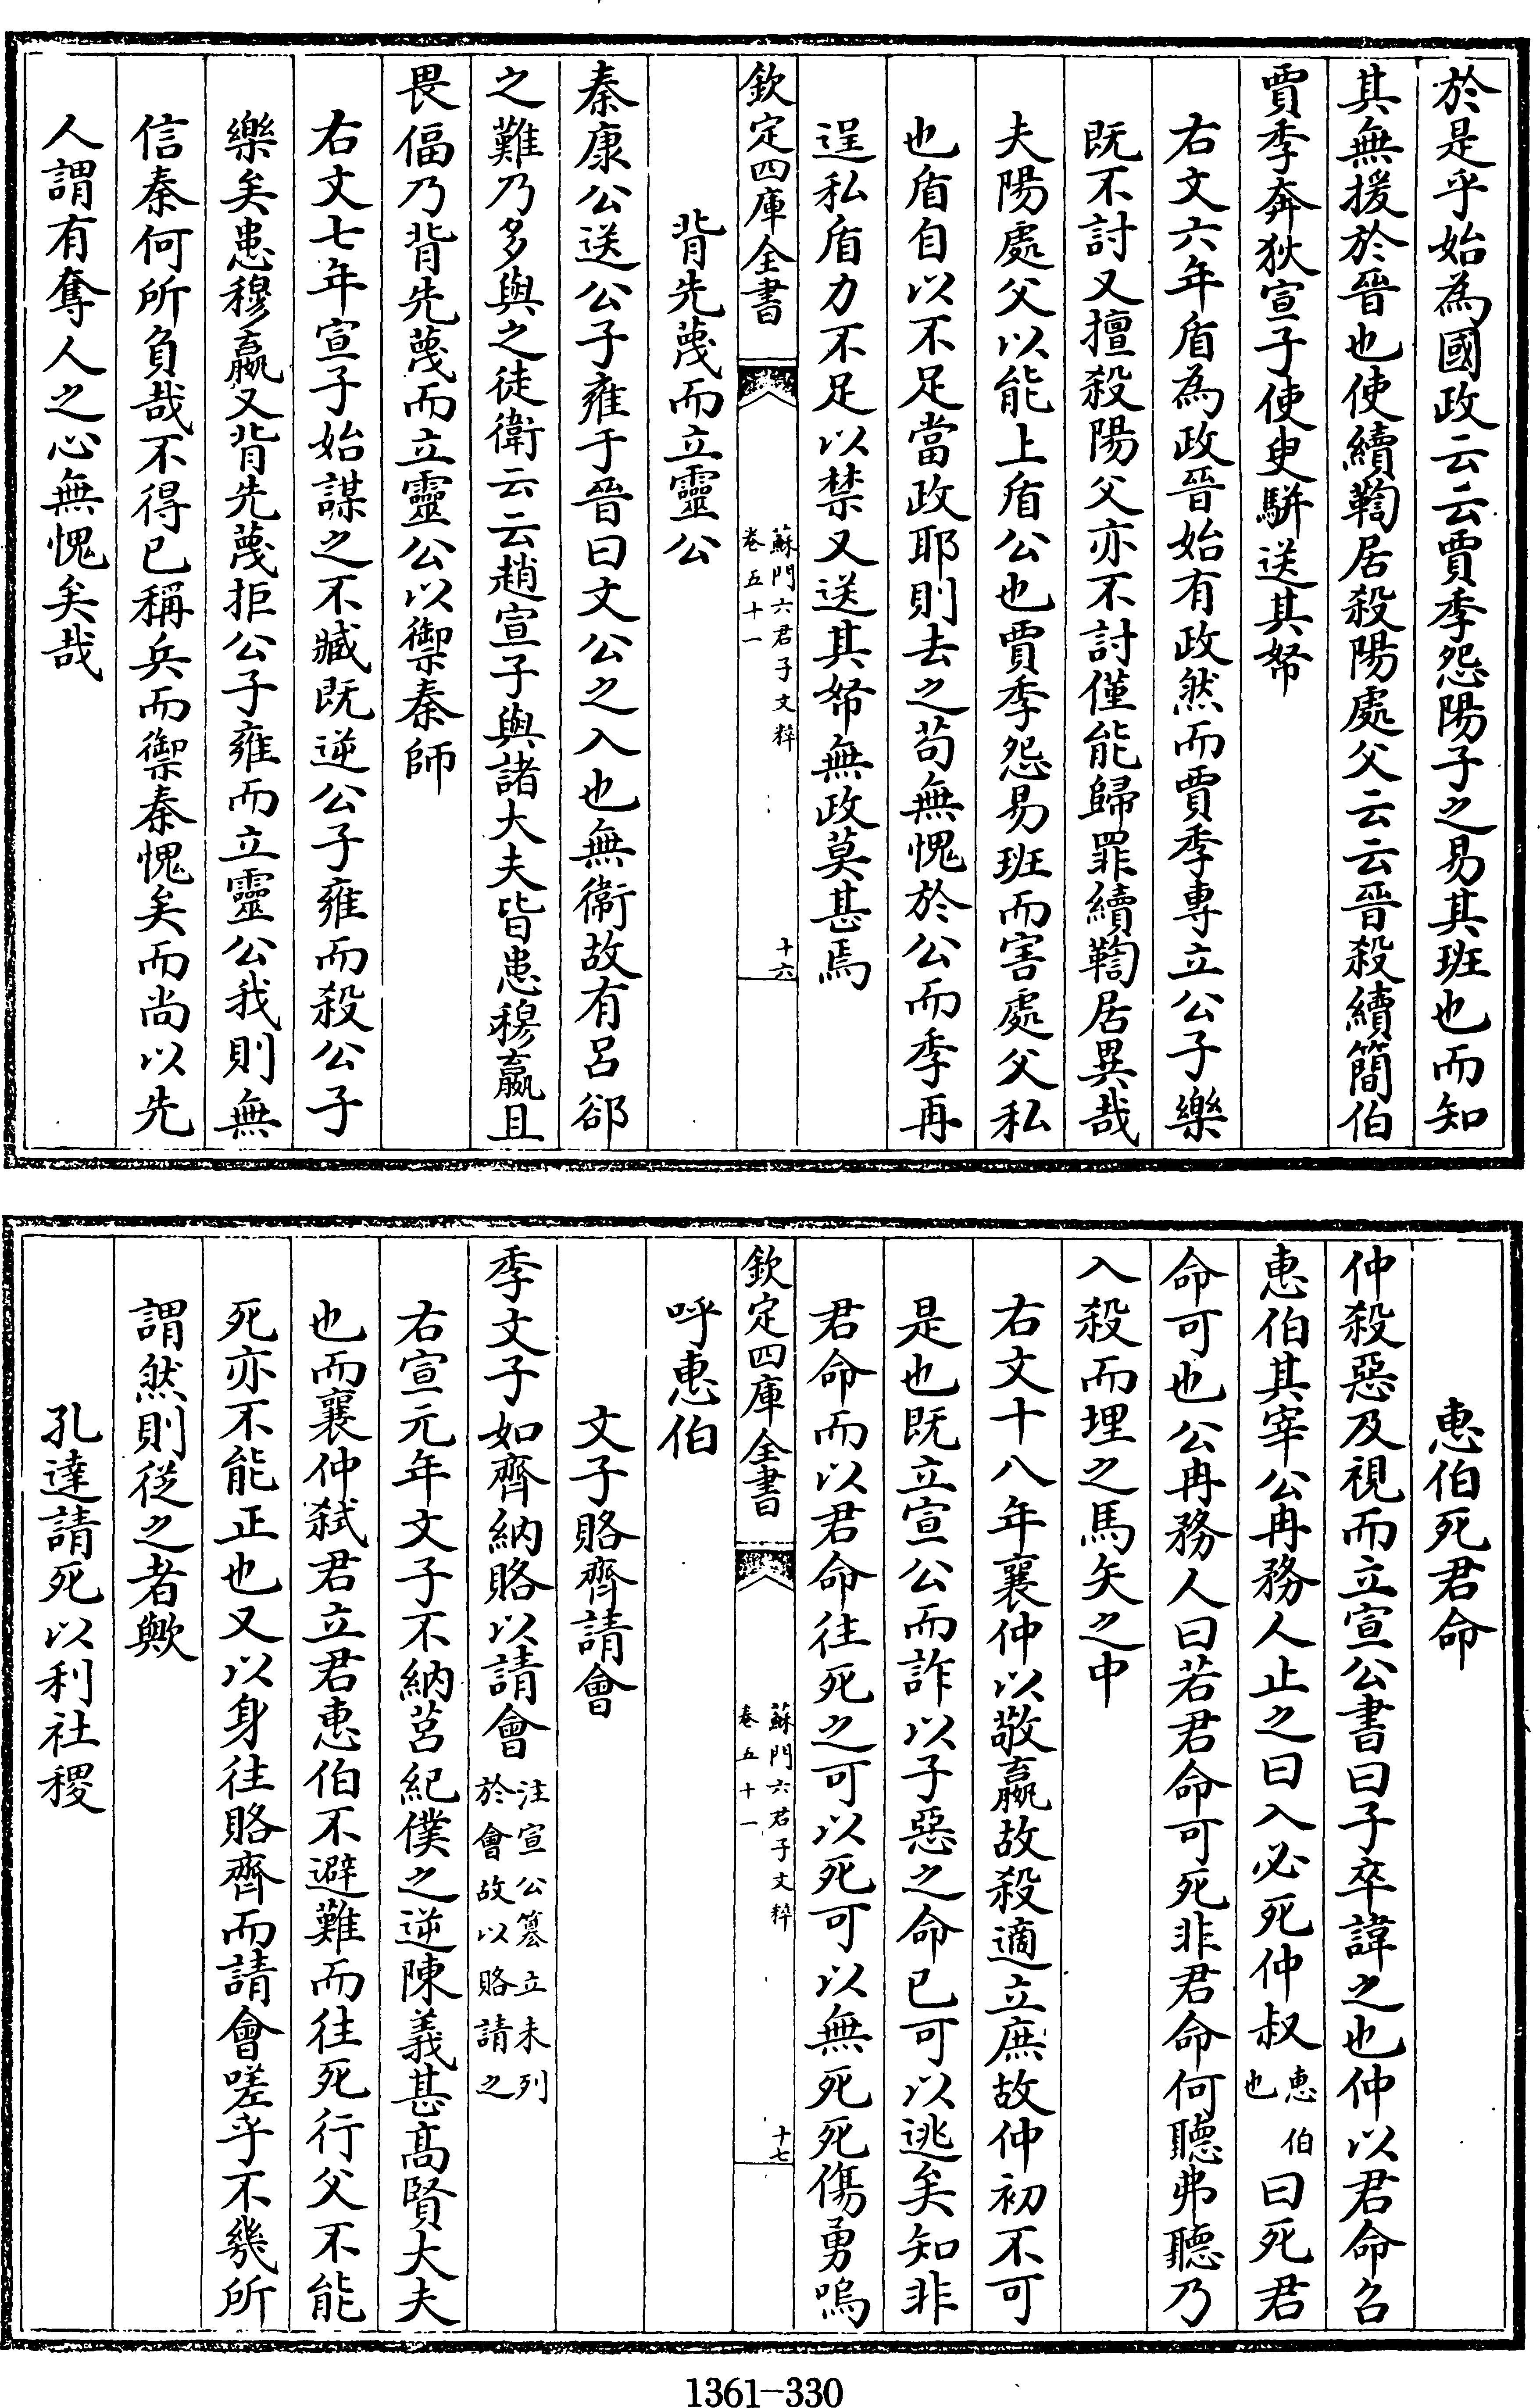 於是乎始為國政云云賈季怨陽子之易其班也而知
其無援於晉也使續鞫居殺陽處父云云晉殺續簡伯
賈季奔狄宣子使臾駢送其帑
右文六年盾為政晉始有政然而賈季專立公子樂
既不討又擅殺陽父亦不討僅能歸罪續鞫居異哉
夫陽處父以能上盾公也賈季怨易班而害處父私
也盾自以不足當政耶則去之苟無愧於公而季再
逞私盾力不足以禁又送其帑無政莫甚焉
欽定四庫全書
蘇門六君子文粹
卷五十一
十六
背先蔑而立靈公
秦康公送公子雍于晉曰文公之入也無衞故有呂郤
之難乃多與之徒衛云云趙宣子與諸大夫皆患穆嬴且
畏偪乃背先蔑而立靈公以禦秦師
右文七年宣子始謀之不臧既逆公子雍而殺公子
樂矣患穆嬴又背先蔑拒公子雍而立靈公我則無
信秦何所負哉不得已稱兵而禦秦愧矣而尚以先
人謂有奪人之心無愧矣哉
惠伯死君命
仲殺惡及視而立宣公書曰子卒諱之也仲以君命召
惠伯其宰公冉務人止之曰入必死仲叔惠伯也曰死君
命可也公冉務人曰若君命可死非君命何聽弗聽乃
入殺而埋之馬矢之中
右文十八年襄仲以敬嬴故殺適立庶故仲初不可
是也既立宣公而詐以子惡之命已可以逃矣知非
君命而以君命往死之可以死可以無死死傷勇嗚
欽定四庫全書
蘇門六君子文粹
卷五十一
十七
呼惠伯
文子賂齊請會
季文子如齊納賂以請會注宣公簒立未列於會故以賂請之
右宣元年文子不納莒紀僕之逆陳義甚高賢大夫
也而襄仲弑君立君惠伯不避難而往死行父不能
死亦不能正也又以身往賂齊而請會嗟乎不幾所
謂然則從之者歟
孔達請死以利社稷
1361-330